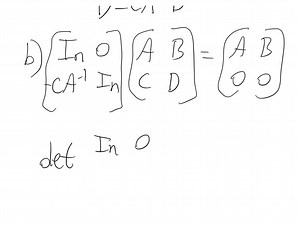 D-CA⁻¹B
b) [In 0 -CA⁻¹ In] [A B C D] = (A B 0 0)
det In 0